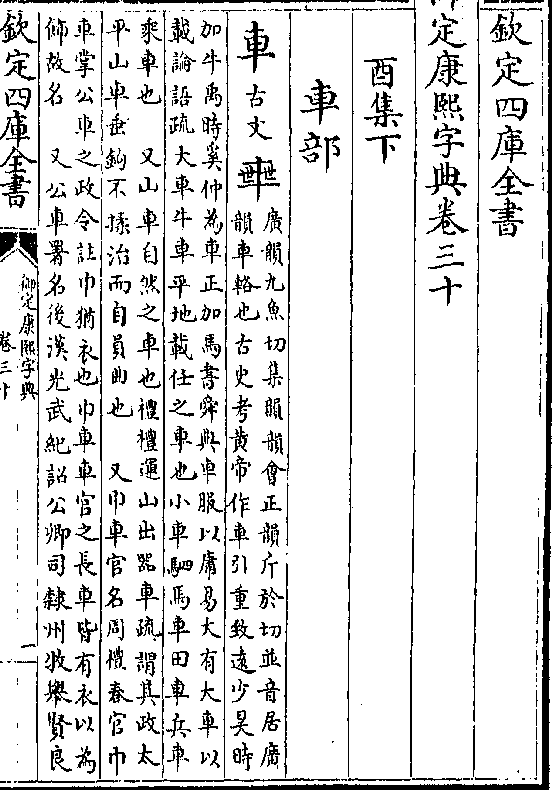 欽定四庫全書
御定康熙字典卷三十
酉集下
車部
車古文𨏖廣韻九魚切集韻韻會正韻斤於切並音居廣
韻車輅也古史考黄帝作車引重致遠少昊時
加牛禹時奚仲為車正加馬書舜典車服以庸易大有大車以
載論語疏大車牛車平地載任之車也小車駟馬車田車兵車
乘車也 又山車自然之車也禮禮運山出器車疏謂其政太
平山車垂鈎不揉治而自員曲也 又巾車官名周禮春官巾
車掌公車之政令註巾猶衣也巾車車官之長車皆有衣以為
飾故名 又公車署名後漢光武紀詔公卿司隸州牧舉賢良
欽定四庫全書
御定康熙字典
卷三十
一